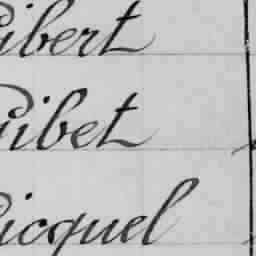 ibert
ibet
icquel